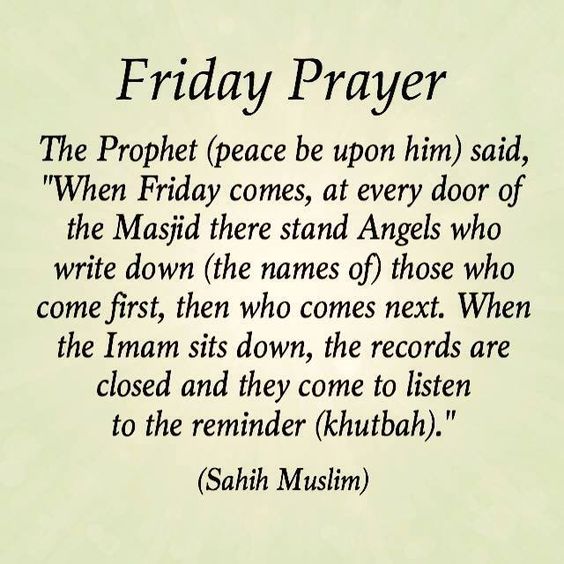 Friday Prayer
The Prophet (peace be upon him) said,
"When Friday comes, at every door of
the Masjid there stand Angels who
write down (the names of) those who
come first, then who comes next. When
the Imam sits down, the records are
closed and they come to listen
to the reminder (khutbah)."
(Sahih Muslim)